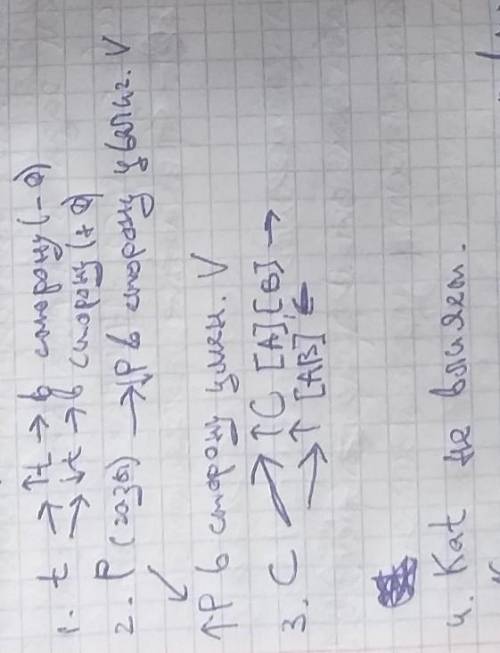 1. t → ↑t → в сторону (-Q)
→ ↓t → в сторону (+Q)
2. P (газы) → ↓P в сторону увелич. V
↙
↑P в сторону умен. V
3. C → ↑C [A][B] →
→ ↑ [AB] ←
4. Kat не влияет.